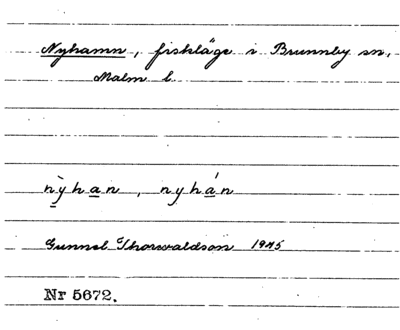 Nyhamn, fiskläge i Brunnby sn,
Malm l.
nỳhan, nyhán
Gunnel Thorwaldson 1945
Nr 5672.